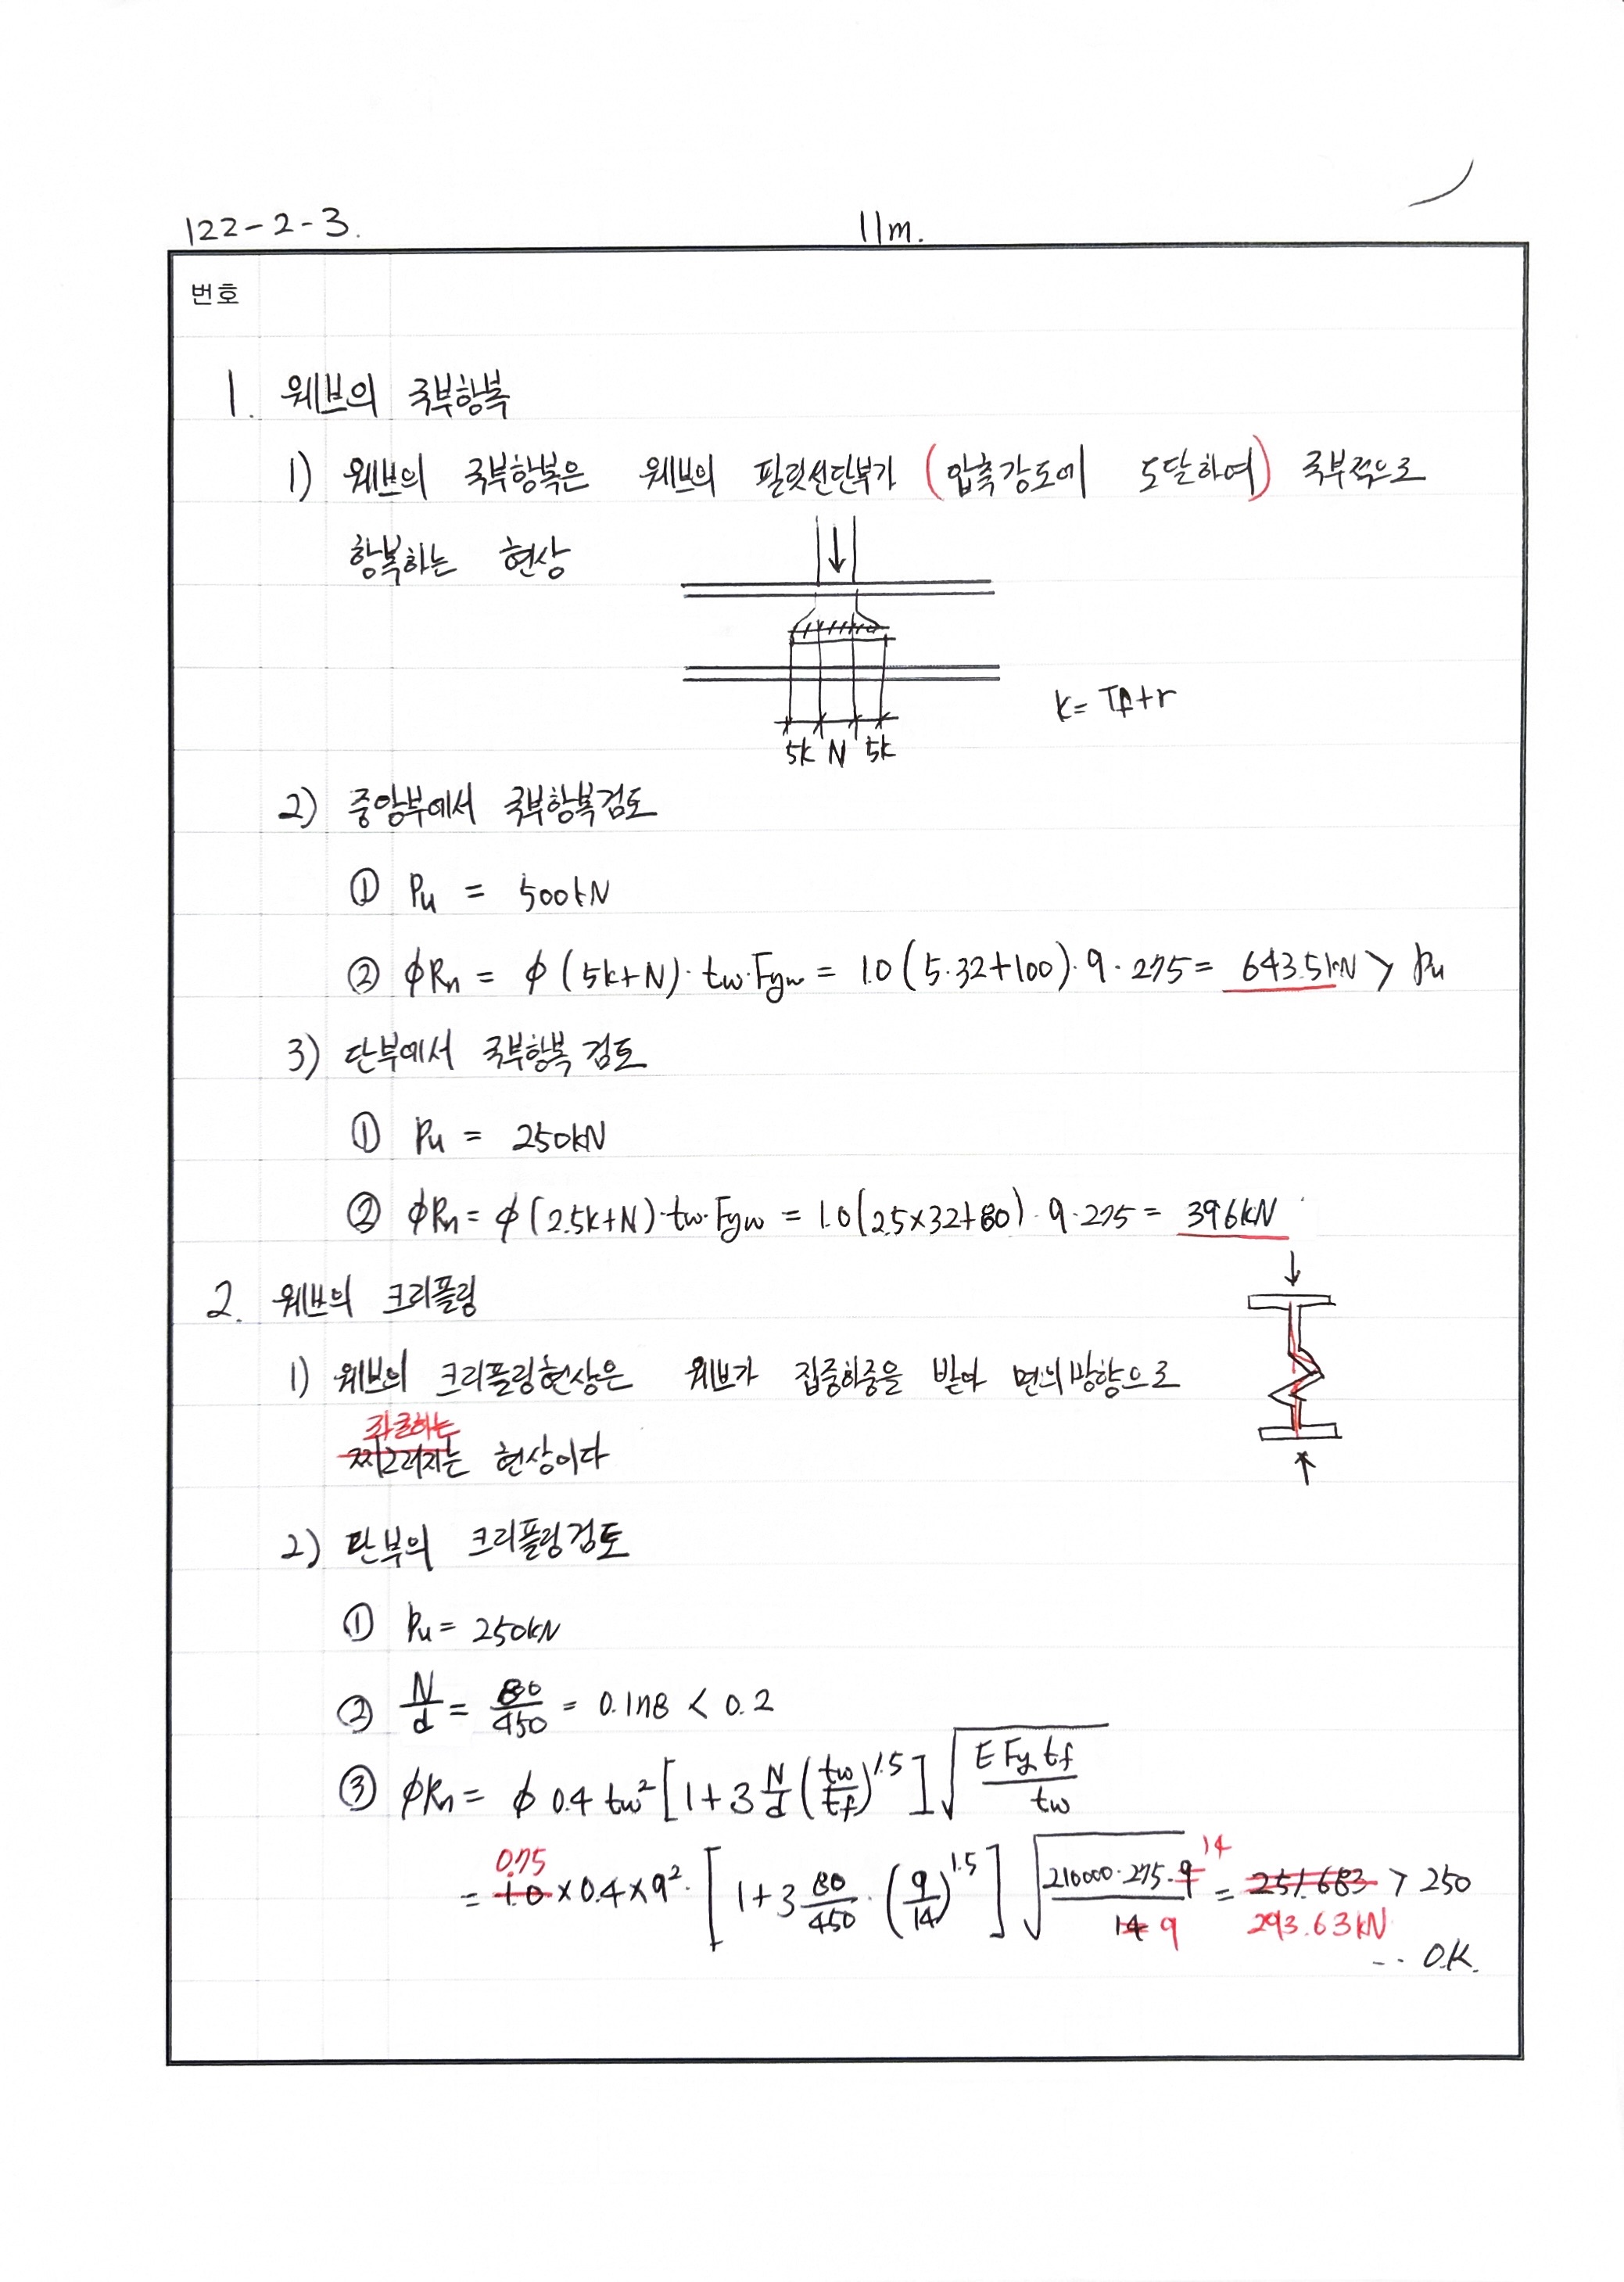 122-2-3.
11m.
번호
1. 웨브의 국부항복
1) 웨브의 국부항복은 웨브의 필릿선단부가 (압축강도에 도달하여) 국부적으로
항복하는 현상
5k N 5k
k= Tf+r
2) 중앙부에서 국부항복검토
① Pu = 500kN
② ϕRn = ϕ(5k+N)·tw·Fyw = 1.0(5·32+100)·9·275= 643.5kN > Pu
3) 단부에서 국부항복 검토
① Pu = 250kN
② ϕRn= ϕ(2.5k+N)·tw·Fyw = 1.0(2.5×32+80)·9·275= 396kN
2. 웨브의 크리플링
1) 웨브의 크리플링현상은 웨브가 집중하중을 받아 면외방향으로
좌굴하는
찌그러지는 현상이다
2) 단부의 크리플링검토
① Pu= 250kN
② N/d = 80/450 = 0.178 < 0.2
③ ϕRn= ϕ 0.4 tw² [1+3 N/d (tw/tf)^1.5] √(E Fy tf / tw)
0.75 14
= 1.0×0.4×9²· [1+3 80/450 · (9/14)^1.5] √(210000·275·9 / 14) = 251.683 > 250
9 293.63kN
... O.K.